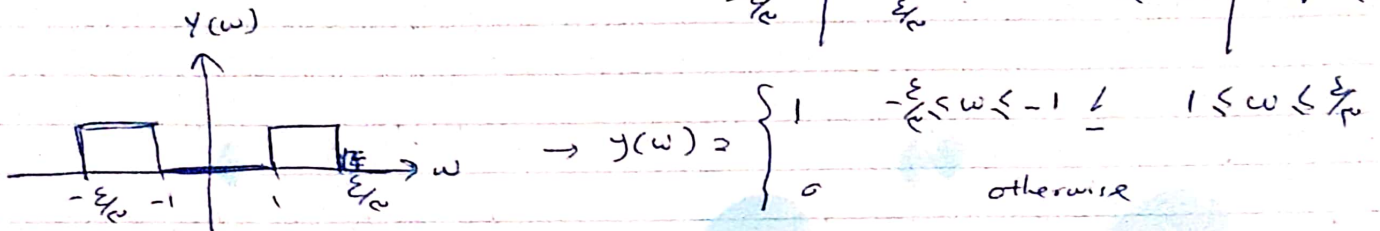 Y(ω)
ω
-3/2 -1 1 3/2
→ y(ω) = { 1 -3/2 ≤ ω ≤ -1 1 ≤ ω ≤ 3/2
0 otherwise